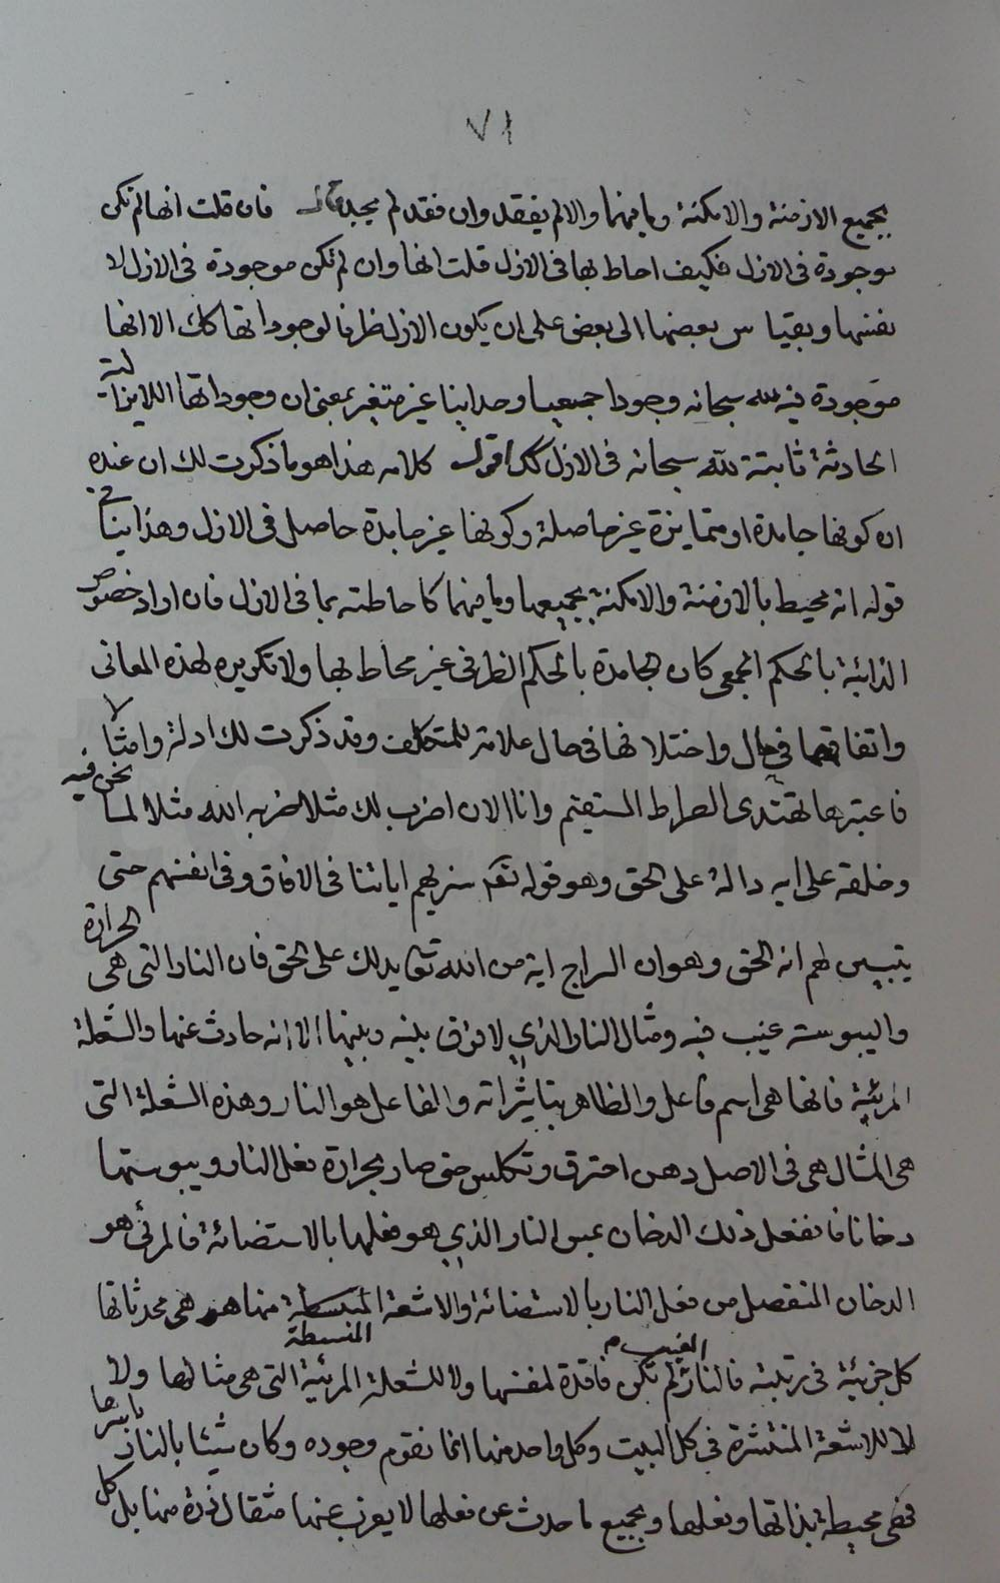 ٧١
بجميع الازمنة والامكنة وما فيهما والا لم يفقد وان فقد لم يجد فان قلت انها لم تكن
موجودة فى الازل فكيف احاط بها فى الازل قلت انها وان لم تكن موجودة فى الازل لا
نفسها وبقياس بعضها الى بعض على ان يكون الازل ظرفا لوجوداتها كك الا انها
موجودة فيه لله سبحانه وجودا جمعيا وحدانيا غير متغير بمعنى ان وجوداتها اللايزالية
الحادثة ثابتة لله سبحانه فى الازل كك اقول كلامه هذا هو ما ذكرت لك ان عنده
ان كونها جامدة او متمايزة غير حاصلة وكونها غير جامدة حاصل فى الازل وهذا ينافى
قوله انه محيط بالازمنة والامكنة بجميعها وما فيهما كاحاطته بما فى الازل فان اراد خصوص
الذاتية بالحكم الجمعى كان الجامدة بالحكم الظرفى غير محاط بها ولا تكريره لهذه المعانى
واتفاقها فى حال واختلافها فى حال علامة للمتكلف وقد ذكرت لك ادلة وامثالا
فاعتبرها تهتدى الصراط المستقيم وانا الان اضرب لك مثلا ضربه الله مثلا لما نحن فيه
وخلقه على انه دالة على الحق وهو قوله تعه سنريهم اياتنا فى الافاق وفى انفسهم حتى
يتبين لهم انه الحق وهو ان السراج اية من الله تع يدلك على الحق فان النار التى هى الحرارة
واليبوسة غيب فيه ومثال النار الذي لا فرق بينه وبينها الا انه حادث عنها والشعلة
المرئية فانها هى اسم فاعل والظاهر بتاثيراته والفاعل هو النار وهذه الشعلة التى
هى المثال هى فى الاصل دهن احترق وتكلس حتى صار بحرارة فعل النار ويبوستها
دخانا فانفعل ذلك الدخان عن مس النار الذي هو فعلها بالاستضائة فالمرئى هو
الدخان المنفصل من فعل النار بالاستضائة والاشعة المنبسطة منها هى محدثاتها
كل جزئية فى رتبته فالنار الغيب لم تكن فاقدة لنفسها ولا للشعلة المرئية التى هى مثالها ولا
للاشعة المنتشرة فى كل البيت وكل واحد منها انما تقوم وجوده وكان شيئا بالنار بتاثيرها
فهى محيطة بذاتها وفعلها وبجميع ما حدث عن فعلها لا يعزب عنها مثقال ذرة منها بل كل